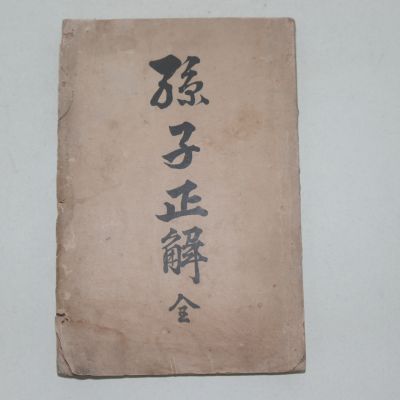 孫子正解全